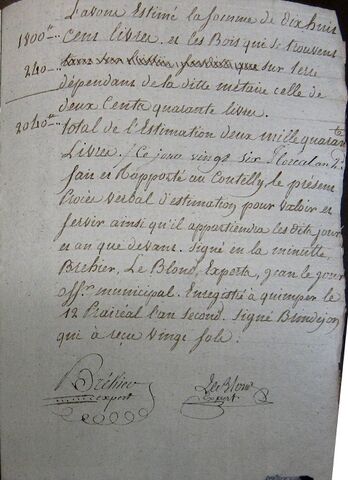 L'avons Estimé la somme de dix huit
1800## cent livres. et les Bois qui se trouvent
240## sur terre
dépendant de la ditte métairie celle de
deux Cents quarante livres.
2040## total de l'Estimation deux mille quarante
Livres. Ce jour vingt six floreal an 2e
fait et Rapporté au Coutelly, le présent
Procès Verbal d'estimation pour valoir et
servir ainsi qu'il appartiendra les dits jour
et an que devant. signé en la minutte,
Bréhier, Le Blond, Experts, jean le gour
off.r municipal. Enregistré à quimper le
12 Prairial l'an second. Signé
qui a reçu vingt sols.
Bréhier Le Blond
expert Expert